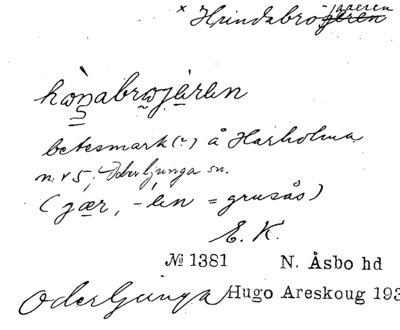 × Hindabrojäeren
ho̱ṉabrojæren
betesmark(2) å Harholma
n:r 5, Oderljunga sn.
(jær, -en = grusås)
E. K.
№ 1381 N. Åsbo hd
Oderljunga Hugo Areskoug 193